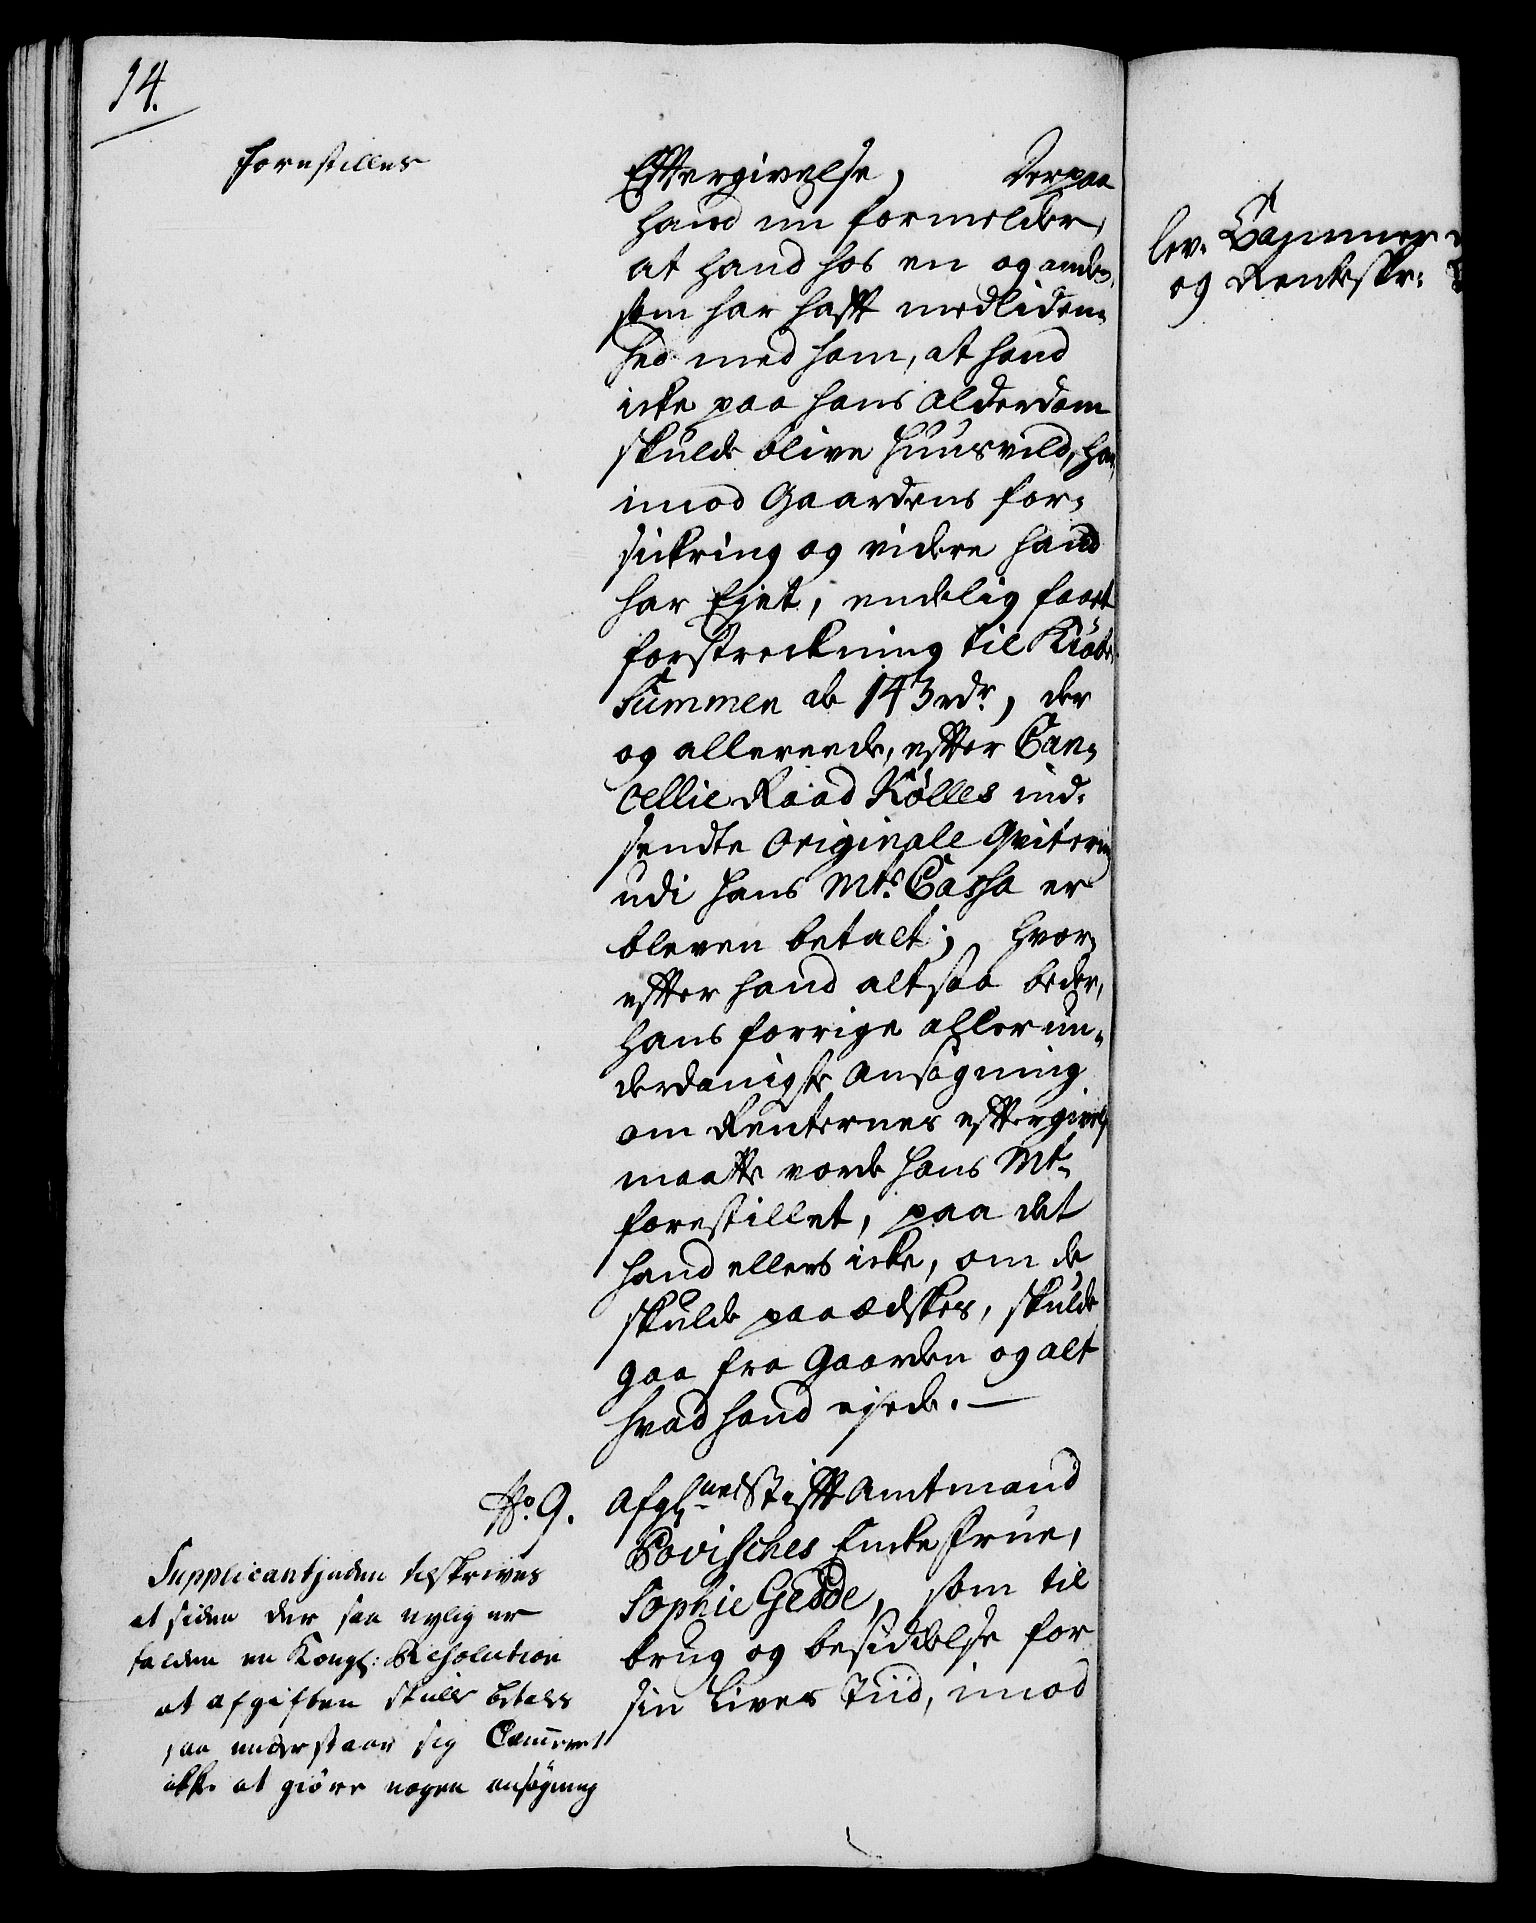 14.
forestilles
Efftergivelse, Derpaa
hand nu formelder,
at hand hos en og anden,
som har hafft medliden-
hed med ham, at hand
icke paa hans Alderdom
skulde blive huusvild, har
imod Gaardens for-
sickring og videre hand
har Ejet, endelig faaet
forstreckning til Kiøbe
Summen de 143 rdr, der
og allereede, effter Can-
cellie Raad Kølles ind-
sendte Originale Qvitering
udi hans Mts. Cassa er
bleven betalt; hvor-
effter hand altsaa beder,
hans forrige allerun-
derdanigste Ansøgning
om Renternes efftergivelse
maatte vorde hans Mt.
forestillet, paa det
hand ellers icke, om de
skulde paaædskes, skulde
gaa fra Gaarden og alt
hvad hand ejede. —
No. 9.
Afgl. Stifft Amtmand
Povisches Encke Frue,
Sophie Gedde, som til
brug og besiddelse for
sin Lives Tiid, imod
Supplicantinden tilskrives
at siden der saa nylig er
falden en Kongl: Resolution
at afgiften skulle betales
saa understaar sig Cammeret
ikke at giøre nogen ansøgning
lev. Cammer
og Renteskr: